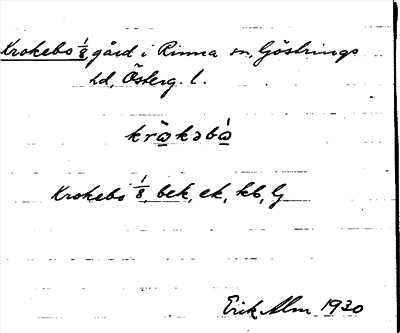 Krokebo 1/8 gård i Rinna sn, Göstrings
hd, Österg. l.
krὼkəbὼ
Krokebo 1/8, bek, ek, kb, G
Erik Alm 1930